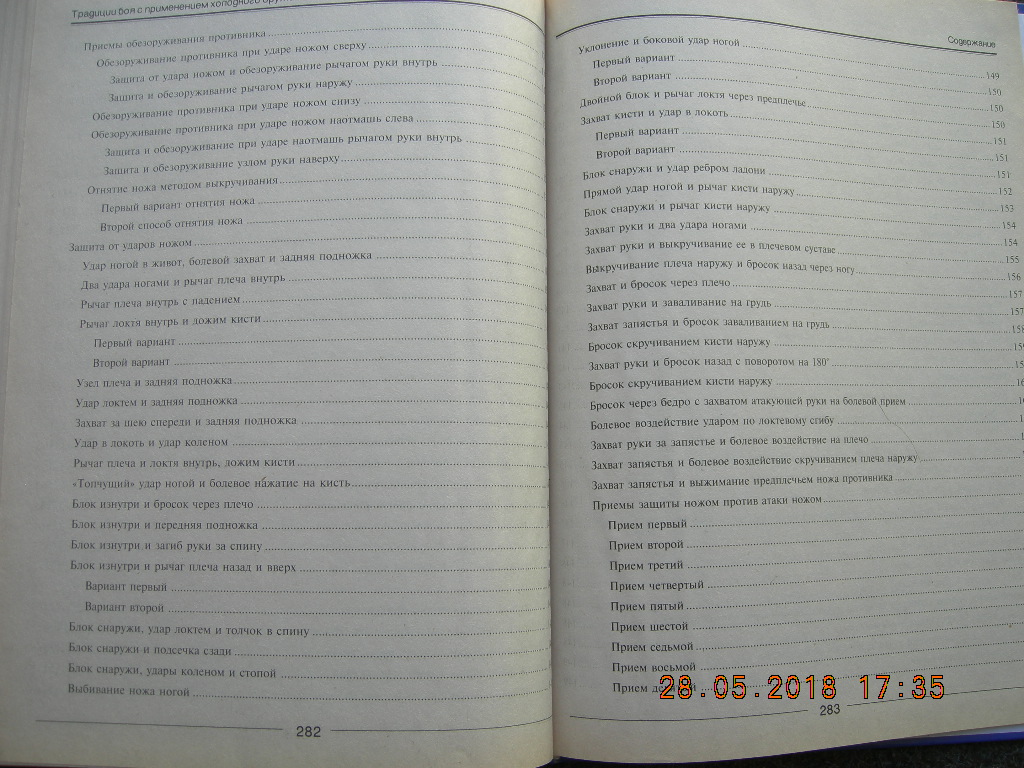 Традиции боя с применением холодного
Приемы обезоруживания противника
Обезоруживание противника при ударе ножом сверху
Защита от удара ножом и обезоруживание рычагом руки внутрь
Защита и обезоруживание рычагом руки наружу
Обезоруживание противника при ударе ножом снизу
Обезоруживание противника при ударе ножом наотмашь слева
Защита и обезоруживание при ударе наотмашь рычагом руки внутрь
Защита и обезоруживание узлом руки наверху
Отнятие ножа методом выкручивания
Первый вариант отнятия ножа
Второй способ отнятия ножа
Защита от ударов ножом
Удар ногой в живот, болевой захват и задняя подножка
Два удара ногами и рычаг плеча внутрь
Рычаг плеча внутрь с падением
Рычаг локтя внутрь и дожим кисти
Первый вариант
Второй вариант
Узел плеча и задняя подножка
Удар локтем и задняя подножка
Захват за шею спереди и задняя подножка
Удар в локоть и удар коленом
Рычаг плеча и локтя внутрь, дожим кисти
«Топчущий» удар ногой и болевое нажатие на кисть
Блок изнутри и бросок через плечо
Блок изнутри и передняя подножка
Блок изнутри и загиб руки за спину
Блок изнутри и рычаг плеча назад и вверх
Вариант первый
Вариант второй
Блок снаружи, удар локтем и толчок в спину
Блок снаружи и подсечка сзади
Блок снаружи, удары коленом и стопой
Выбивание ножа ногой
282
Содержание
Уклонение и боковой удар ногой 149
Первый вариант 150
Второй вариант 150
Двойной блок и рычаг локтя через предплечье 150
Захват кисти и удар в локоть 151
Первый вариант 151
Второй вариант 151
Блок снаружи и удар ребром ладони 152
Прямой удар ногой и рычаг кисти наружу 153
Блок снаружи и рычаг кисти наружу 154
Захват руки и два удара ногами 154
Захват руки и выкручивание ее в плечевом суставе 155
Выкручивание плеча наружу и бросок назад через ногу 156
Захват и бросок через плечо 157
Захват руки и заваливание на грудь 157
Захват запястья и бросок заваливанием на грудь
Бросок скручиванием кисти наружу
Захват руки и бросок назад с поворотом на 180°
Бросок скручиванием кисти наружу
Бросок через бедро с захватом атакующей руки на болевой прием
Болевое воздействие ударом по локтевому сгибу
Захват руки за запястье и болевое воздействие на плечо
Захват запястья и болевое воздействие скручиванием плеча наружу
Захват запястья и выжимание предплечьем ножа противника
Приемы защиты ножом против атаки ножом
Прием первый
Прием второй
Прием третий
Прием четвертый
Прием пятый
Прием шестой
Прием седьмой
Прием восьмой
Прием
28.05.2018 17:35
283